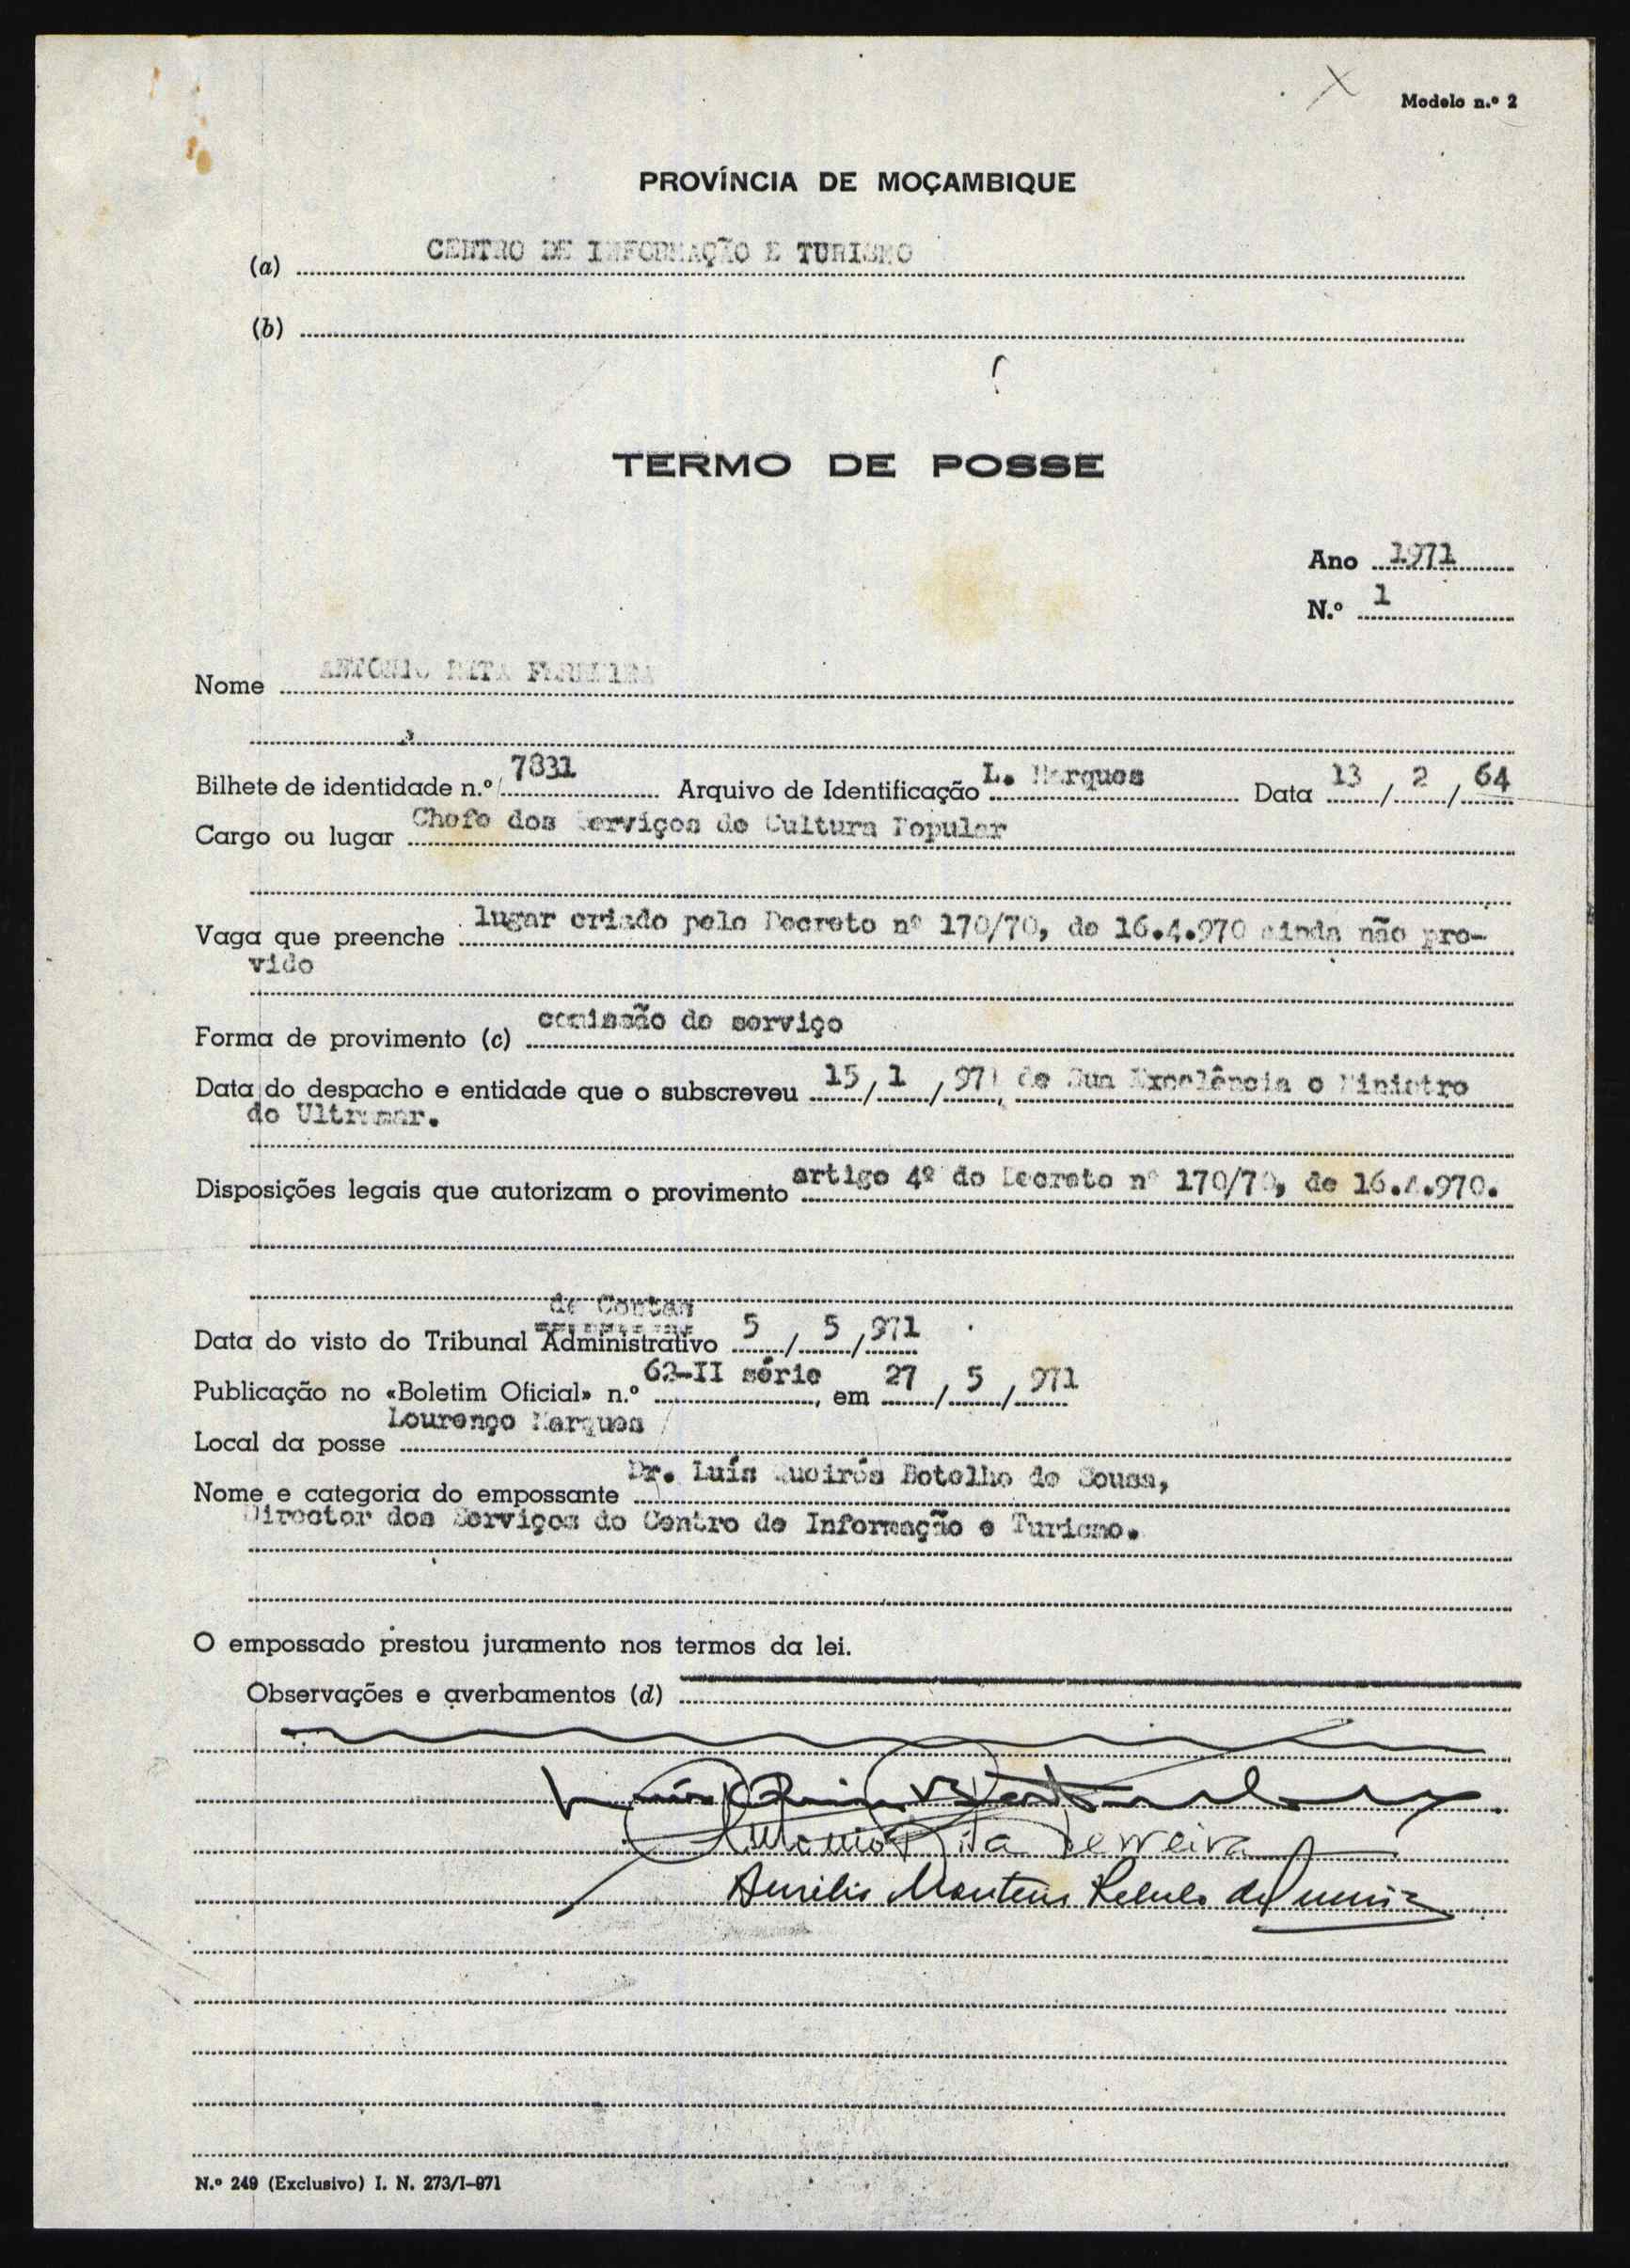 Modelo n.º 2
PROVÍNCIA DE MOÇAMBIQUE
(a) CENTRO DE INFORMAÇÃO E TURISMO
(b)
TERMO DE POSSE
Ano 1971
N.º 1
Nome ANTONIO RITA FERREIRA
Bilhete de identidade n.º 7831 Arquivo de Identificação L. Marques Data 13 / 2 / 64
Cargo ou lugar Chefe dos Serviços de Cultura Popular
Vaga que preenche lugar criado pelo Decreto nº 170/70, de 16.4.970 ainda não pro-
vido
Forma de provimento (c) comissão de serviço
Data do despacho e entidade que o subscreveu 15 / 1 / 971, de Sua Excelência o Ministro
do Ultramar.
Disposições legais que autorizam o provimento artigo 4º do Decreto nº 170/70, de 16.4.970.
de Contas
Data do visto do Tribunal Administrativo 5 / 5 / 971
Publicação no «Boletim Oficial» n.º 62-II série, em 27 / 5 / 971
Local da posse Lourenço Marques
Nome e categoria do empossante Dr. Luís Queirós Botelho de Sousa,
Director dos Serviços do Centro de Informação e Turismo.
O empossado prestou juramento nos termos da lei.
Observações e averbamentos (d)
Antonio Rita Ferreira
N.º 249 (Exclusivo) I. N. 273/I-971